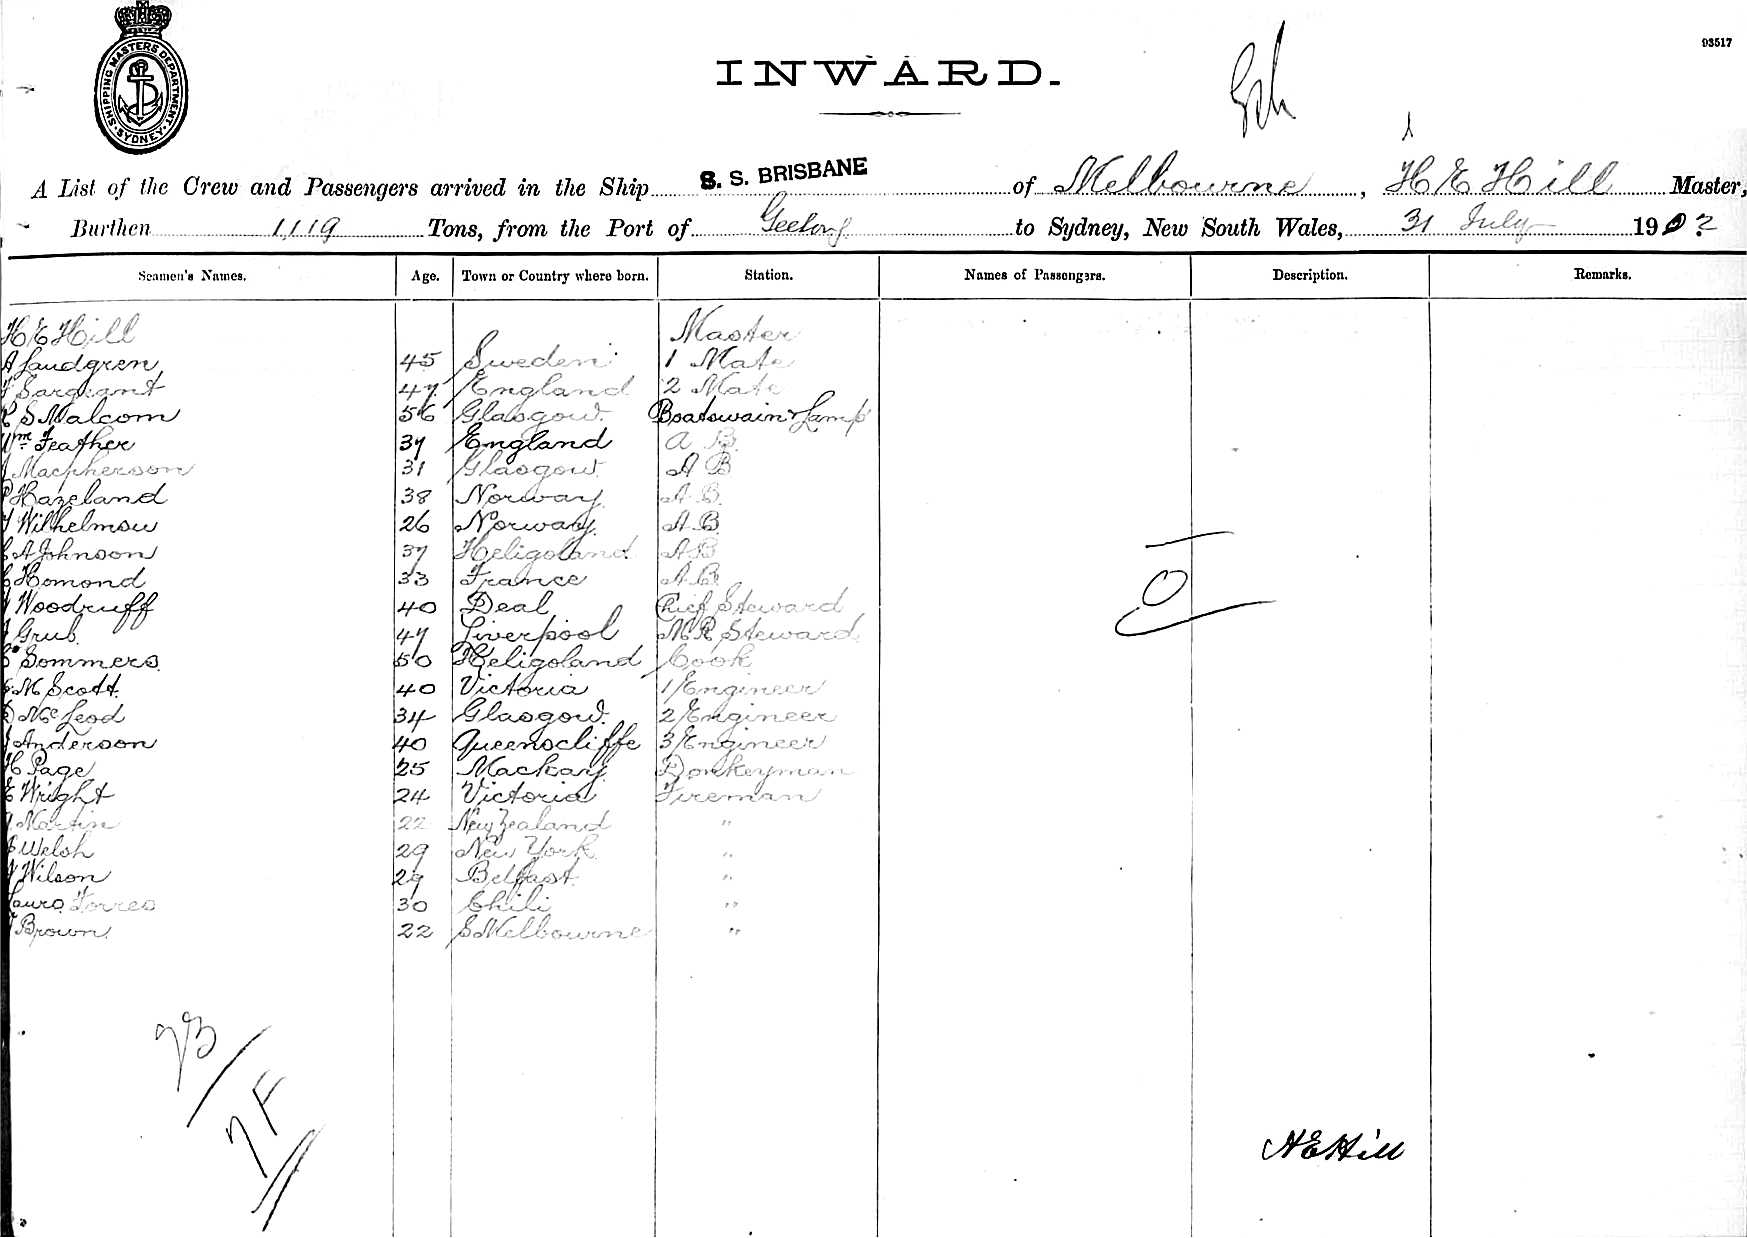 SHIPPING MASTERS DEPARTMENT. SYDNEY.
93517
INWARD.
A List of the Crew and Passengers arrived in the Ship S. S. BRISBANE of Melbourne, H E Hill Master,
Burthen 1119 Tons, from the Port of Geelong to Sydney, New South Wales, 31 July 1902
Seamen's Names. Age. Town or Country where born. Station. Names of Passengers. Description. Remarks.
H E Hill Master
A Lundgren 45 Sweden 1 Mate
Sargeant 47 England 2 Mate
S Malcom 56 Glasgow Boatswain & Lamp
Wm Feather 37 England A B
Macpherson 31 Glasgow A B
P Hazeland 38 Norway A B
Wilhelmsen 26 Norway A B
A Johnson 37 Heligoland A B
Homond 33 France A B
Woodruff 40 Deal Chief Steward
Grub 47 Liverpool M R Steward
Sommers 50 Heligoland Cook
M Scott 40 Victoria 1/Engineer
D McLeod 34 Glasgow 2/Engineer
Anderson 40 Queenscliffe 3/Engineer
H Page 25 Mackay Donkeyman
E Wright 24 Victoria Fireman
Martin 22 New Zealand "
Welsh 29 New York "
Wilson 29 Belfast "
Lauro Torres 30 Chili "
Brown 22 S Melbourne "
23
7 F
H E Hill